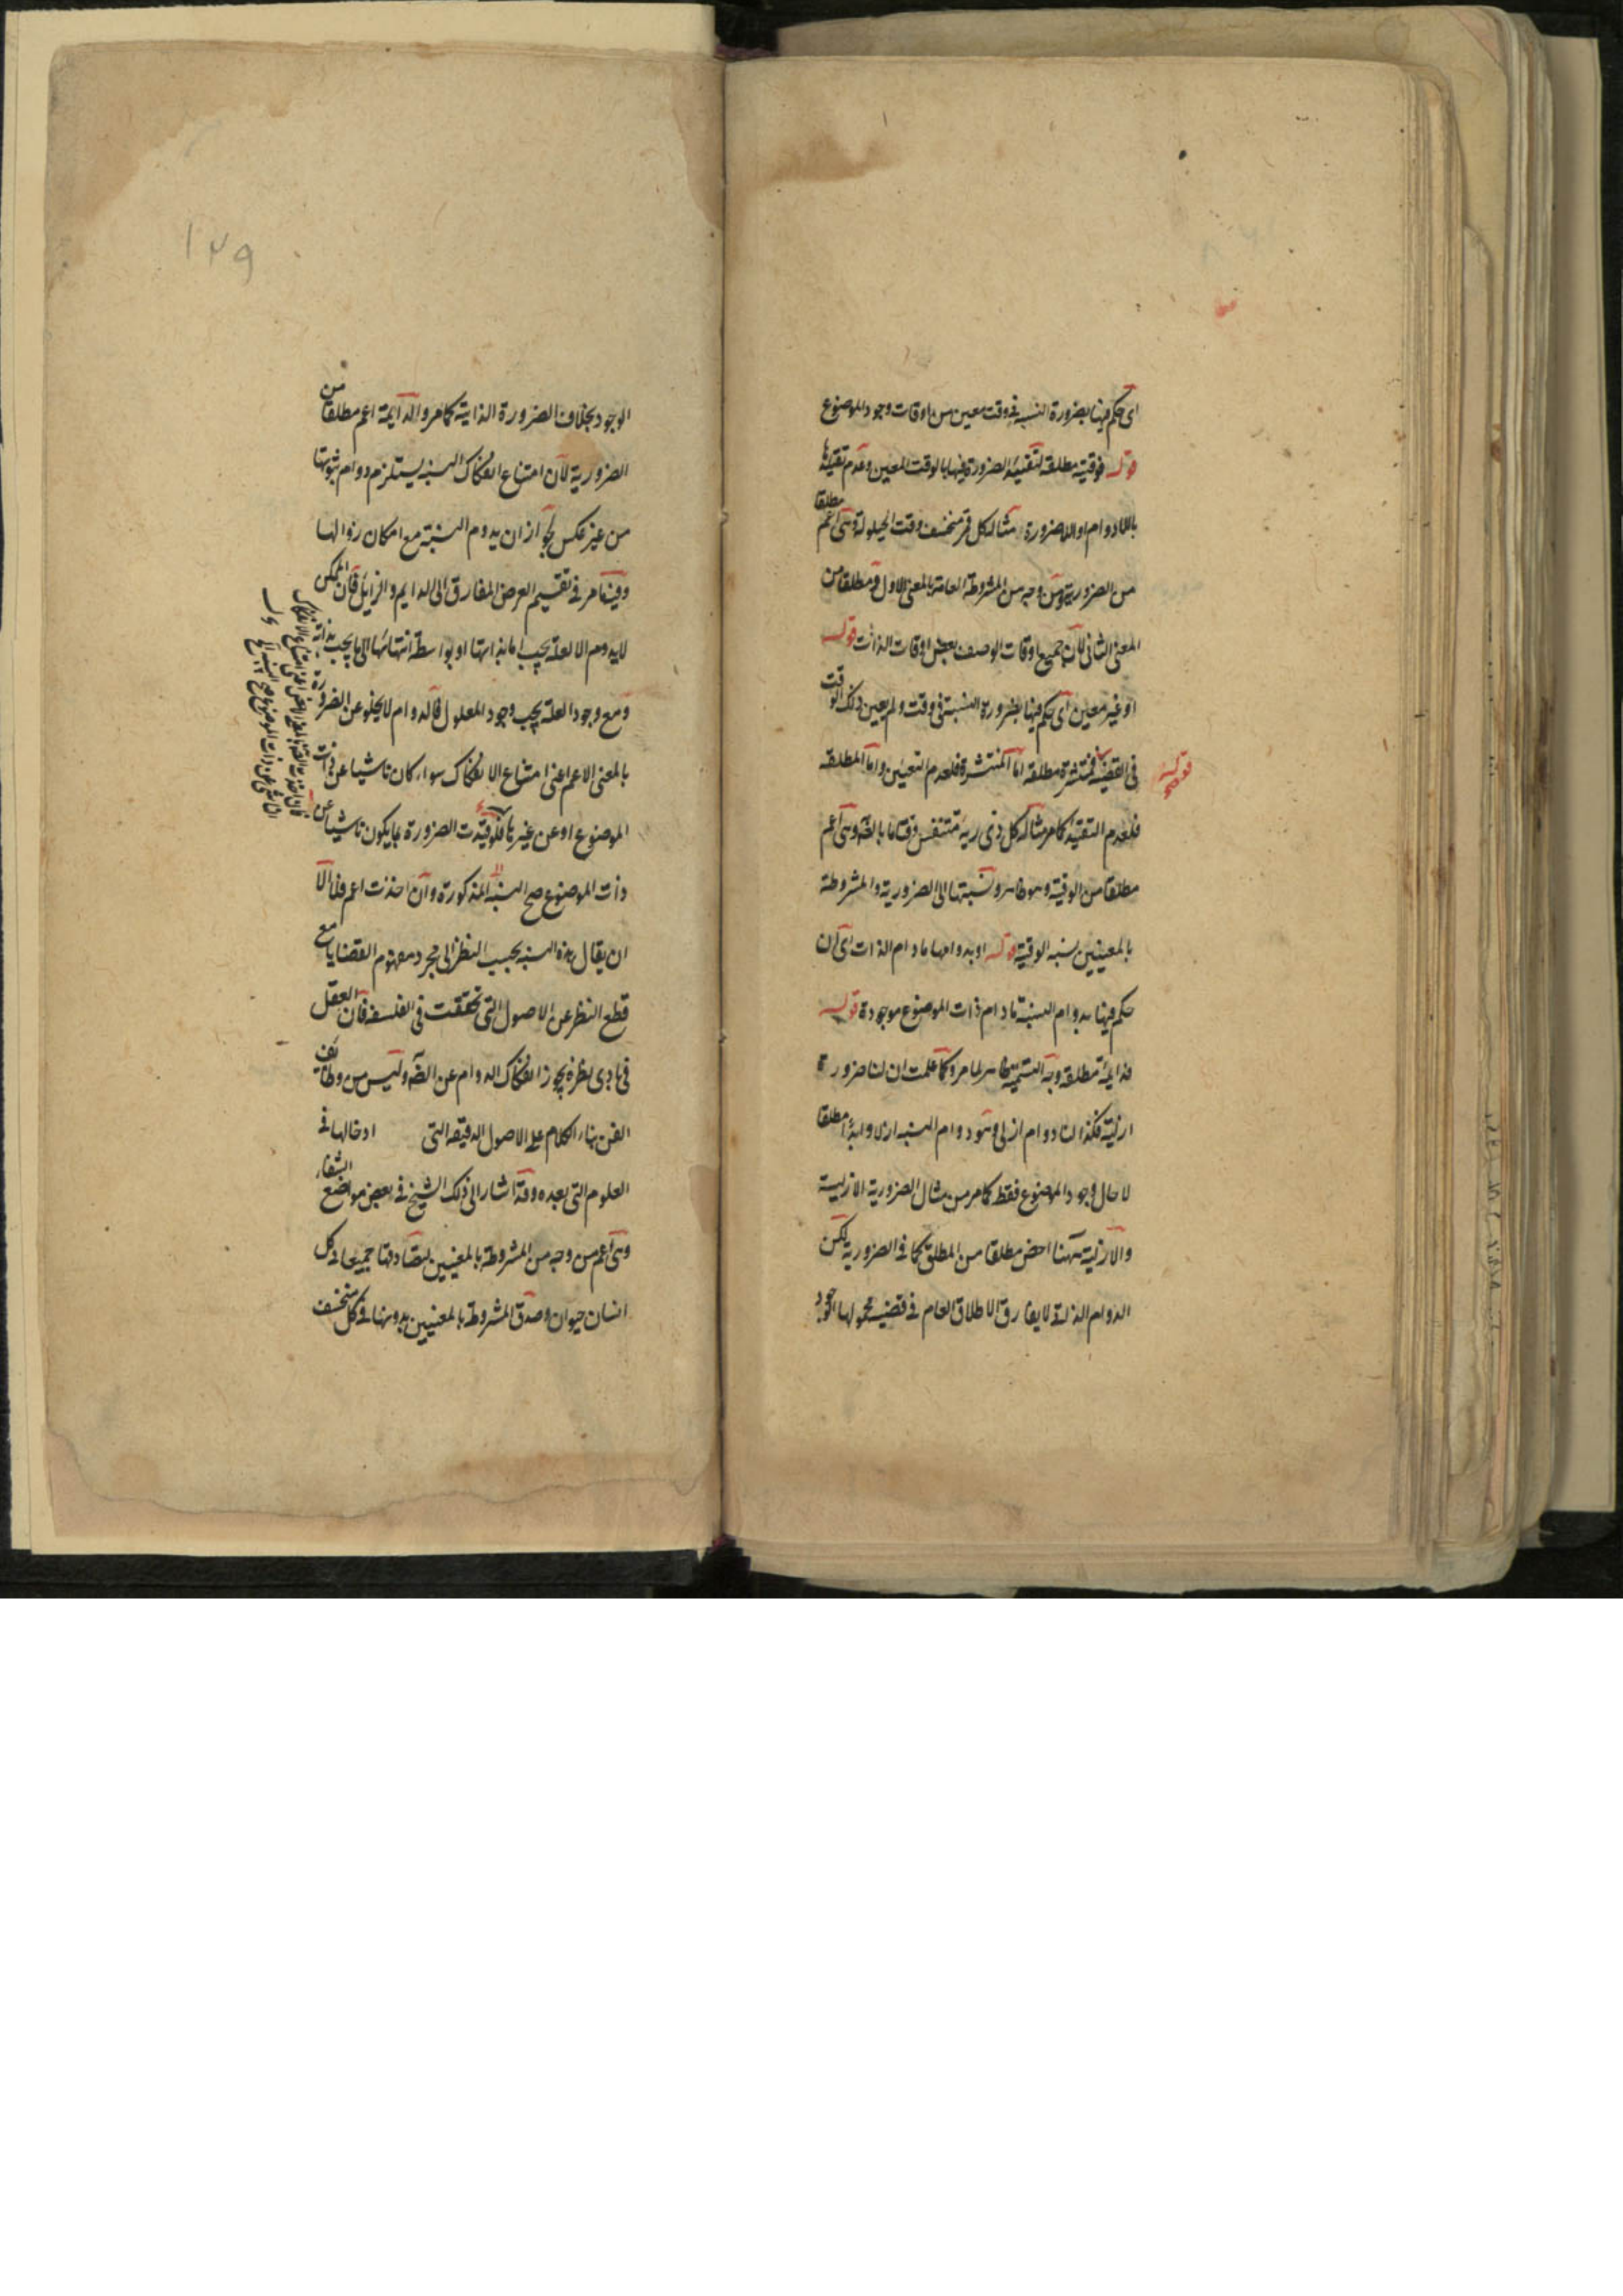 اى حكم فيها بضرورة النسبة فى وقت معين من اوقات وجود الموضوع
قوله فوقتية مطلقة لتقييد الضرورة فيها بالوقت المعين وعدم تقييدها
باللادوام او اللاضرورة مثاله كل قمر منخسف وقت الحيلولة وهى اعم مطلقا
من الضرورية ومن وجه من المشروطة العامة بالمعنى الاول ومطلقا من
المعنى الثانى لان جميع اوقات الوصف بعض اوقات الذات قوله
او غير معين اى حكم فيها بضرورة النسبة فى وقت ولم يعين ذلك الوقت
فى القضية قوله فمنتشرة مطلقة اما المنتشرة فلعدم التعيين واما المطلقة
فلعدم التقييد كما مر مثاله كل ذى رية متنفس وقتا ما بالضرورة وهى اعم
مطلقا من الوقتية وهو ظاهر ونسبتها الى الضرورية والمشروطة
بالمعنيين نسبة الوقتية قوله او بدوامها ما دام الذات اى ان
حكم فيها بدوام النسبة ما دام ذات الموضوع موجودة قوله
فدايمة مطلقة وجه التسمية ظاهر لما مر وكما علمت ان لنا ضرورة
ازلية فكذا لنا دوام ازلى وهو دوام النسبة ازلا وابدا مطلقا
لا حال وجود الموضوع فقط كما مر من مثال الضرورية الازلية
والازلية ههنا اخص مطلقا من المطلق كما فى الضرورية لكن
الدوام الذاتى لا يفارق الاطلاق العام فى قضية محمولها الوجود
١٢٩
الوجود بخلاف الضرورة الذاتية كما مر والدايمة اعم مطلقا من
الضرورية لان امتناع انفكاك النسبة يستلزم دوام ثبوتها
من غير عكس لجواز ان يدوم النسبة مع امكان زوالها
وفيه ما مر فى تقسيم العرض المفارق الى الدايم والزايل فان الممكن
لا يدوم الا لعلة يجب اما بذاتها او بواسطة انتهائها الى ما يجب بذاته
ومع وجود العلة يجب وجود المعلول فالدوام لا يخلو عن الضرورة
بالمعنى الاعم اعنى امتناع الانفكاك سواء كان ناشيا عن ذات
الموضوع او عن غيرها فلو قيدت الضرورة بما يكون ناشيا عن
ذات الموضوع صح النسبة المذكورة وان اخذت اعم فلا الا
ان يقال هذه النسبة بحسب النظر الى مجرد مفهوم القضايا مع
قطع النظر عن الاصول التى تحققت فى الفلسفة فان العقل
فى بادى نظره يجوز انفكاك الدوام عن الضرورة وليس من وظايف
الفن بناء الكلام على الاصول الدقيقة التى ادخالها فى
العلوم التى بعده وقد اشار الى ذلك الشيخ فى بعض مواضع الشفاء
وهى اعم من وجه من المشروطة بالمعنيين لتصادقها جميعا فى كل
انسان حيوان وصدق المشروطة بالمعنيين بدونها فى كل منخسف